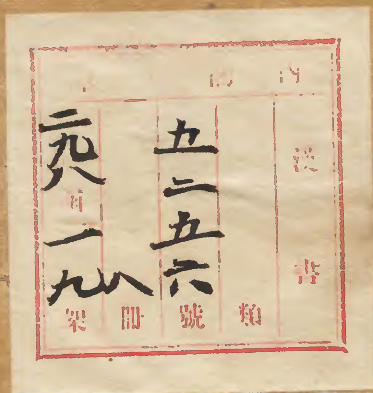 漢書
類
五二五六號
八冊
二九八函一九架